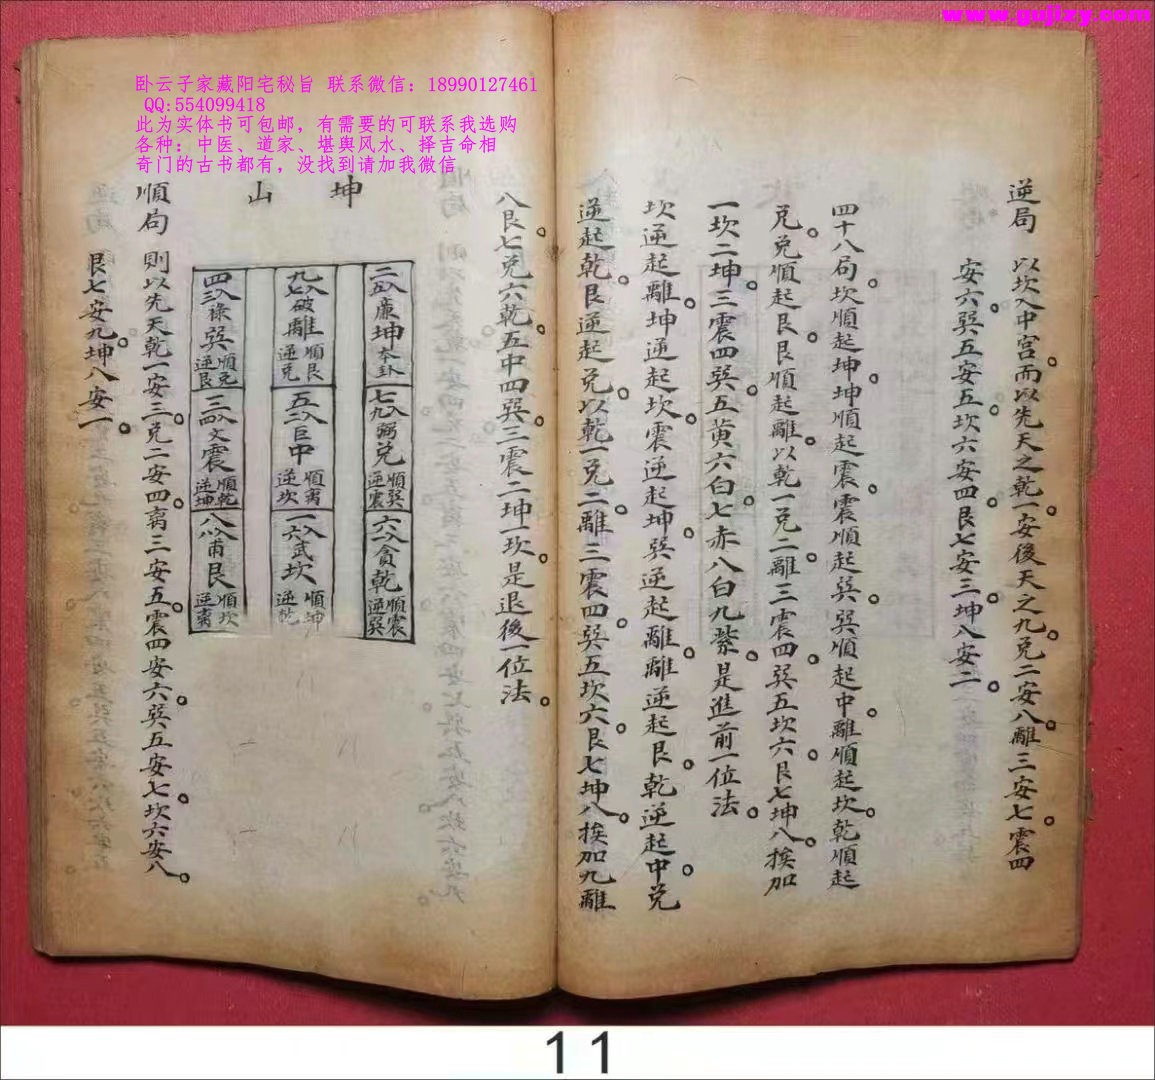 www.gujizy.com
卧云子家藏阳宅秘旨 联系微信：18990127461
QQ:554099418
此为实体书可包邮，有需要的可联系我选购
各种：中医、道家、堪舆风水、择吉命相
奇门的古书都有，没找到请加我微信
逆局 以坎入中宮而以先天之乾一安後天之九兑二安八離三安七震四
安六巽五安五坎六安四艮七安三坤八安二
四十八局坎順起坤坤順起震震順起巽巽順起中離順起坎乾順起
兑兑順起艮艮順起離以乾一兑二離三震四巽五坎六艮七坤八挨加
一坎二坤三震四巽五黄六白七赤八白九紫是進前一位法
坎逆起離坤逆起坎震逆起坤巽逆起離離逆起艮乾逆起中兑
逆起乾艮逆起兑以乾一兑二離三震四巽五坎六艮七坤八挨加九離
八艮七兑六乾五中四巽三震二坤一坎是退後一位法
坤山
二五入廉坤本卦
七九入弼兑順巽逆震
六一入貪乾順震逆巽
九七入破離順艮逆兑
五二入巨中順离逆坎
一六入武坎順坤逆乾
四三入祿巽順兑逆艮
三四入文震順乾逆坤
八八入甫艮順坎逆离
順局 則以先天乾一安三兑二安四离三安五震四安六巽五安七坎六安八
艮七安九坤八安一
11